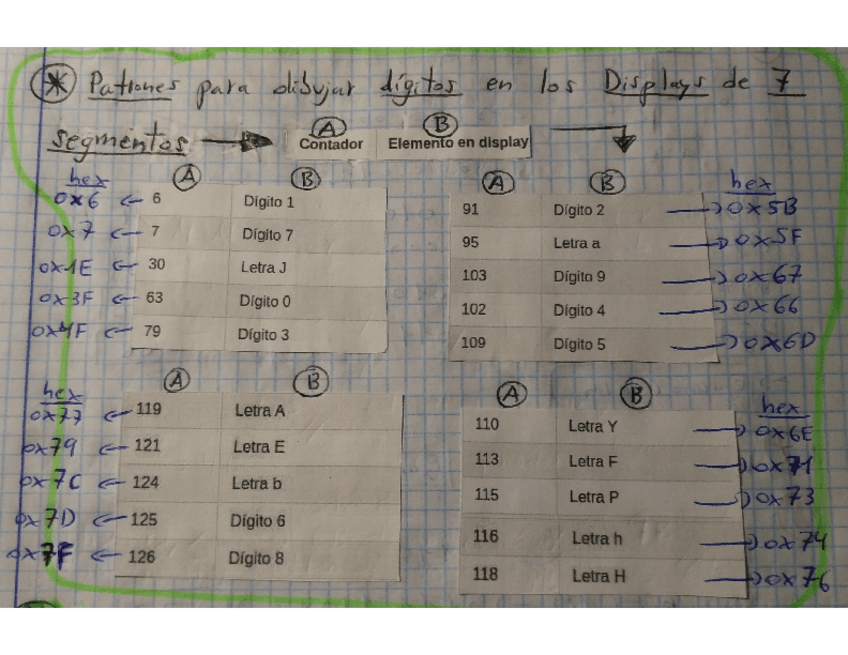 * Patrones para dibujar dígitos en los Displays de 7
segmentos
A B
Contador Elemento en display
hex A B
0x6 6 Dígito 1
0x7 7 Dígito 7
0x1E 30 Letra J
0x3F 63 Dígito 0
0x4F 79 Dígito 3
A B hex
91 Dígito 2 0x5B
95 Letra a 0x5F
103 Dígito 9 0x67
102 Dígito 4 0x66
109 Dígito 5 0x6D
hex A B
0x77 119 Letra A
0x79 121 Letra E
0x7C 124 Letra b
0x7D 125 Dígito 6
0x7F 126 Dígito 8
A B hex
110 Letra Y 0x6E
113 Letra F 0x71
115 Letra P 0x73
116 Letra h 0x74
118 Letra H 0x76